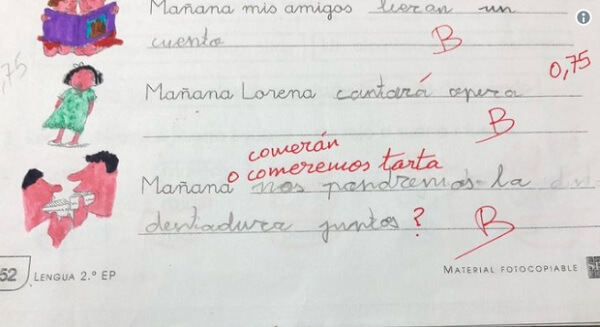 Mañana mis amigos leerán un
cuento
B
0,75
Mañana Lorena cantará opera
B
comerán
o comeremos tarta
Mañana nos pondremos la
dentadura juntos ?
B
52 LENGUA 2.º EP
MATERIAL FOTOCOPIABLE